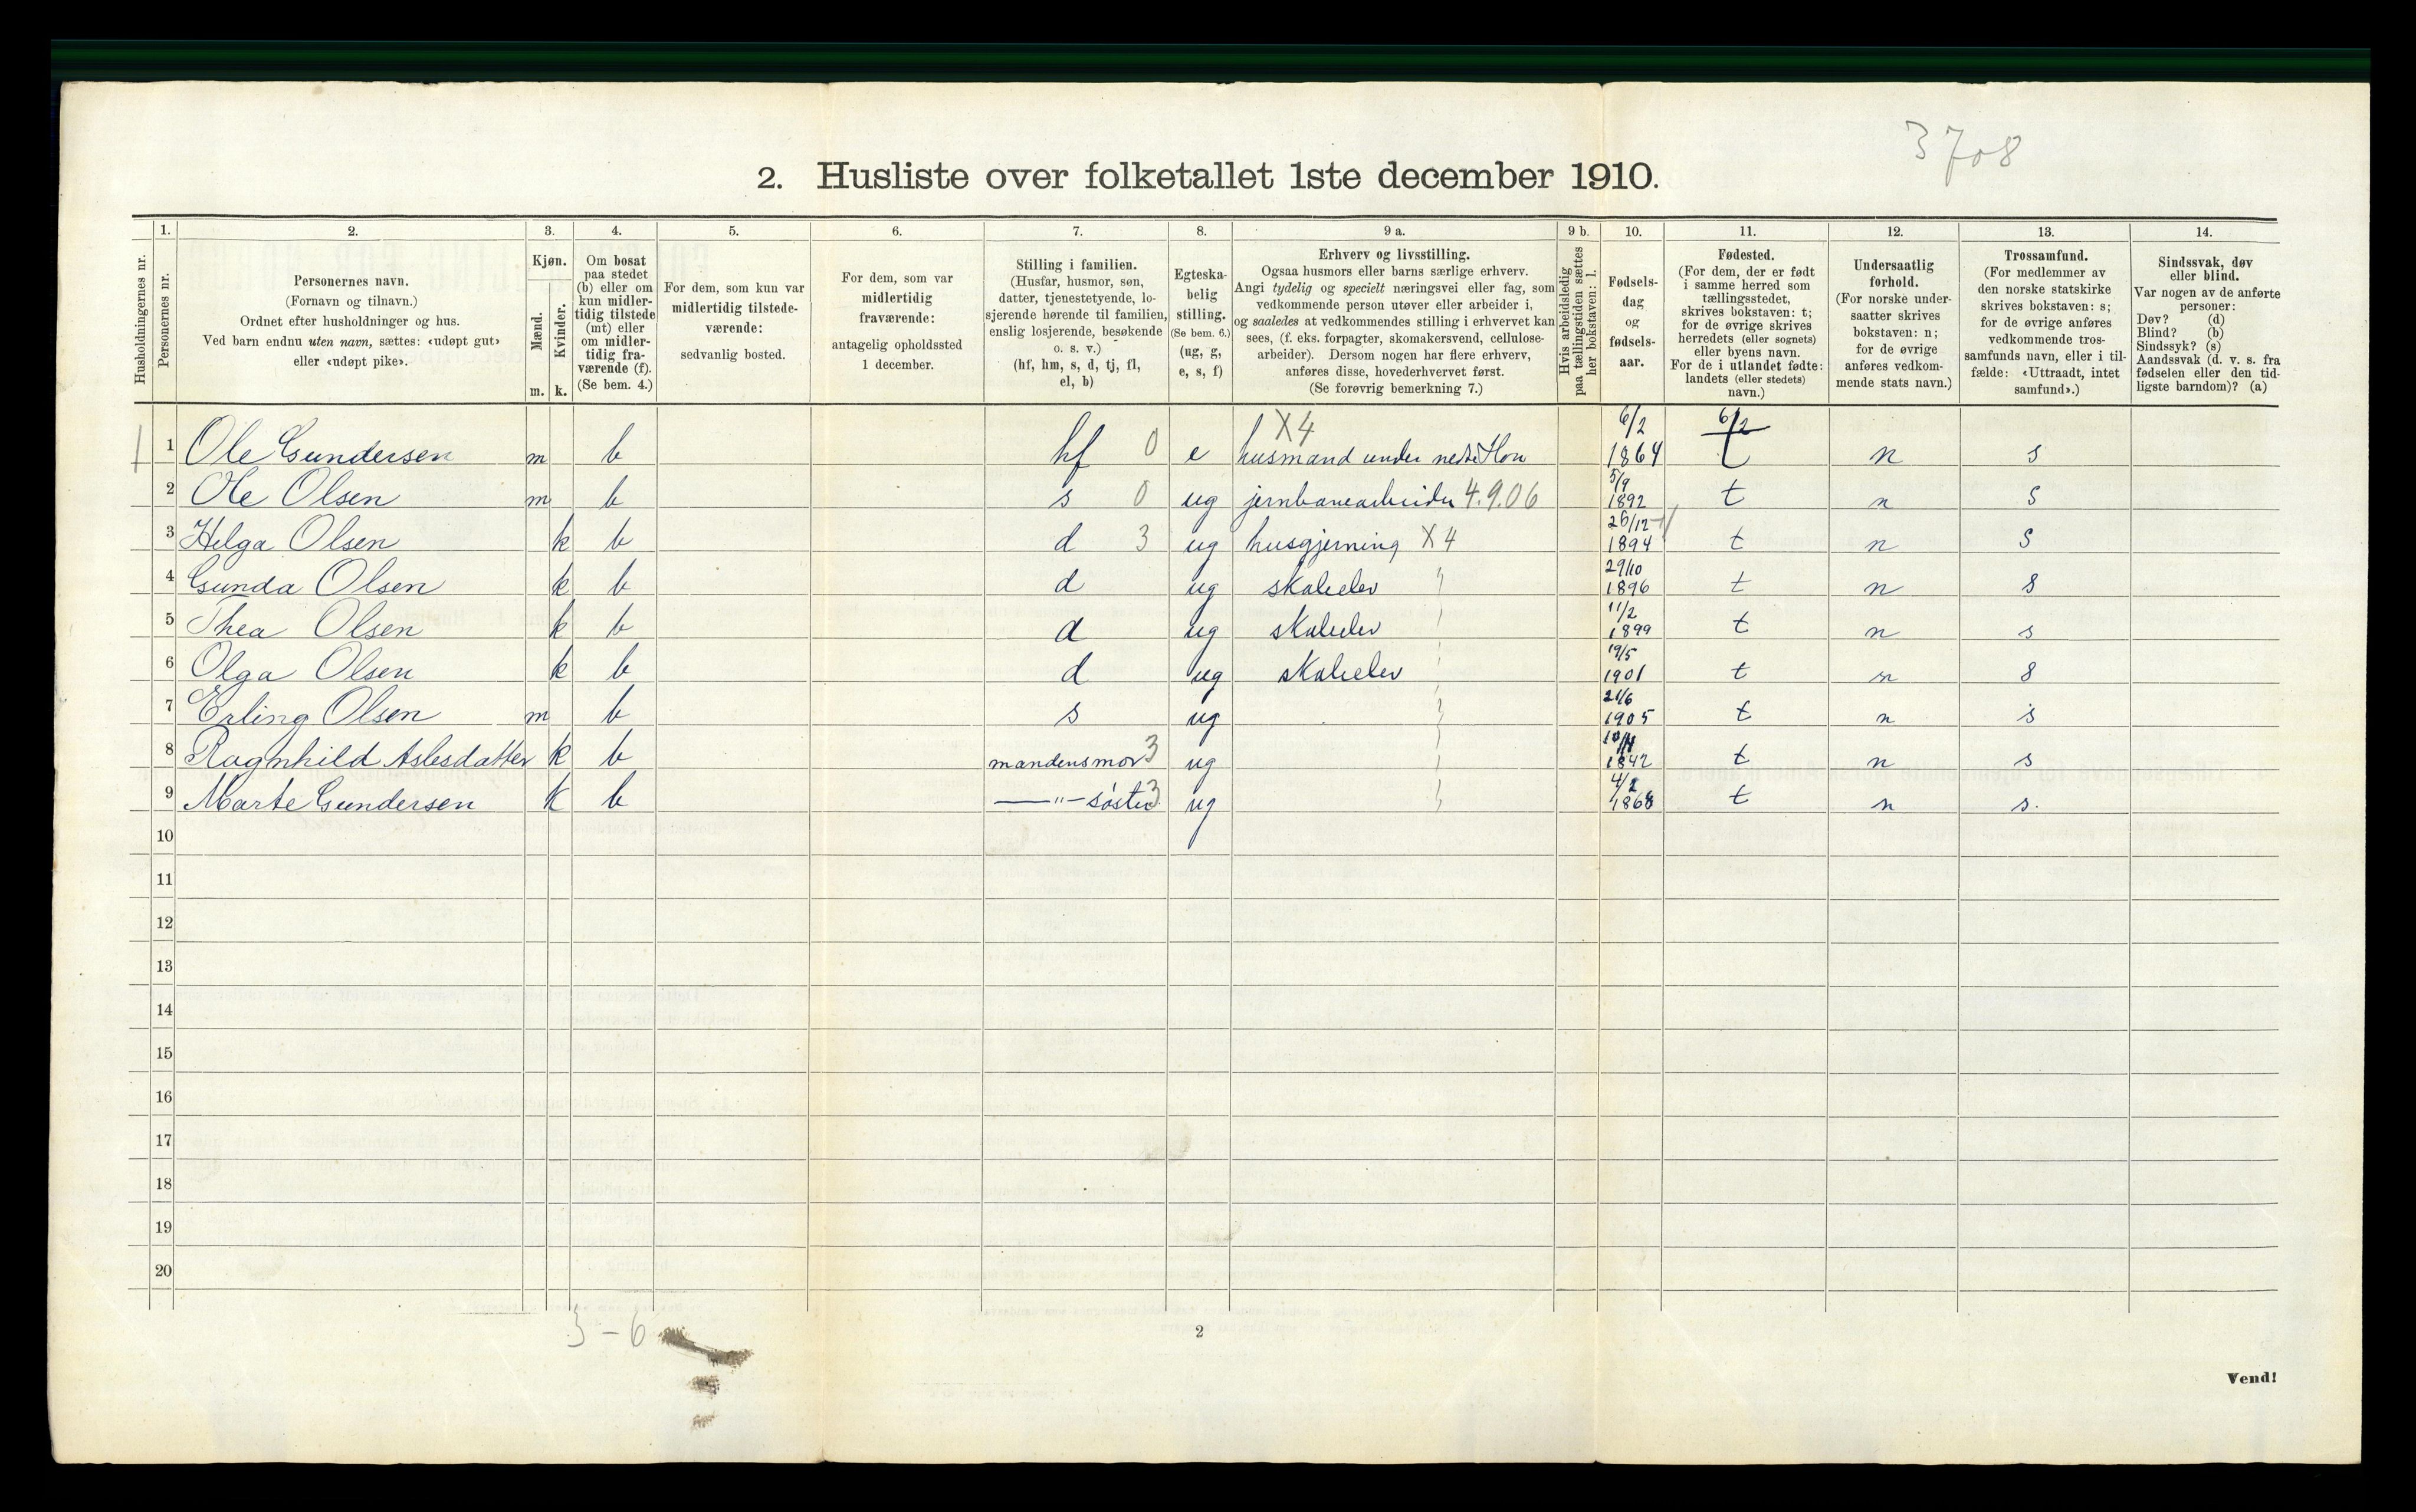 3708
2. Husliste over folketallet 1ste december 1910.
Husholdningernes nr.
1. Personernes nr.
2. Personernes navn.
(Fornavn og tilnavn.)
Ordnet efter husholdninger og hus.
Ved barn endnu uten navn, sættes: «udøpt gut»
eller «udøpt pike».
3. Kjøn.
Mænd. m.
Kvinder. k.
4. Om bosat
paa stedet
(b) eller om
kun midler-
tidig tilstede
(mt) eller
om midler-
tidig fra-
værende (f).
(Se bem. 4.)
5. For dem, som kun var
midlertidig tilstede-
værende:
sedvanlig bosted.
6. For dem, som var
midlertidig
fraværende:
antagelig opholdssted
1 december.
7. Stilling i familien.
(Husfar, husmor, søn,
datter, tjenestetyende, lo-
sjerende hørende til familien,
enslig losjerende, besøkende
o. s. v.)
(hf, hm, s, d, tj, fl,
el, b)
8. Egteska-
belig
stilling.
(Se bem. 6.)
(ug, g,
e, s, f)
9 a. Erhverv og livsstilling.
Ogsaa husmors eller barns særlige erhverv.
Angi tydelig og specielt næringsvei eller fag, som
vedkommende person utøver eller arbeider i,
og saaledes at vedkommendes stilling i erhvervet kan
sees, (f. eks. forpagter, skomakersvend, cellulose-
arbeider). Dersom nogen har flere erhverv,
anføres disse, hovederhvervet først.
(Se forøvrig bemerkning 7.)
9 b. Hvis arbeidsledig
paa tællingstiden sættes
her bokstaven: l.
10. Fødsels-
dag
og
fødsels-
aar.
11. Fødested.
(For dem, der er født
i samme herred som
tællingsstedet,
skrives bokstaven: t;
for de øvrige skrives
herredets (eller sognets)
eller byens navn.
For de i utlandet fødte:
landets (eller stedets)
navn.)
12. Undersaatlig
forhold.
(For norske under-
saatter skrives
bokstaven: n;
for de øvrige
anføres vedkom-
mende stats navn.)
13. Trossamfund.
(For medlemmer av
den norske statskirke
skrives bokstaven: s;
for de øvrige anføres
vedkommende tros-
samfunds navn, eller i til-
fælde: «Uttraadt, intet
samfund».)
14. Sindssvak, døv
eller blind.
Var nogen av de anførte
personer:
Døv? (d)
Blind? (b)
Sindssyk? (s)
Aandssvak (d. v. s. fra
fødselen eller den tid-
ligste barndom)? (a)
X4 6/2 6/2
1 1 Ole Gundersen m b hf 0 e husmand under nedre Hon 1864 t n s
2 Ole Olsen m b s 0 ug jernbanearbeider 4.9.06 5/9 1892 t n s
3 Helga Olsen k b d 3 ug husgjerning X4 26/12 1894 t n s
4 Gunda Olsen k b d ug skoleelev 29/10 1896 t n s
5 Thea Olsen k b d ug skoleelev 11/2 1899 t n s
6 Olga Olsen k b d ug skoleelev 19/5 1901 t n s
7 Erling Olsen m b s ug 21/6 1905 t n s
8 Ragnhild Aslesdatter k b mandens mor 3 ug 1842 t n s
9 Marte Gundersen k b —"— søster 3 ug 1868 t n s.
10
11
12
13
14
15
16
17
18
19
20
3-6
2
Vend!